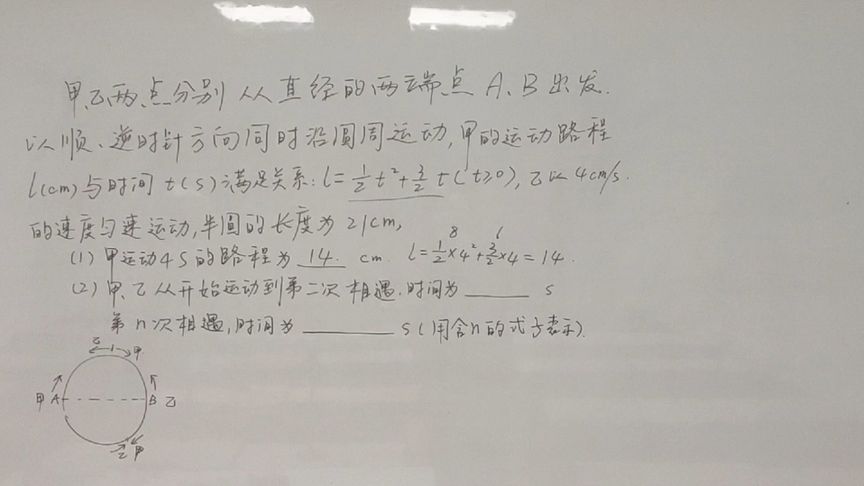 甲、乙两点分别从直径的两端点 A、B 出发.
以顺、逆时针方向同时沿圆周运动,甲的运动路程
l(cm)与时间 t(s)满足关系: l=\frac{1}{2}t²+\frac{3}{2}t(t≥0),乙以 4cm/s.
的速度匀速运动,半圆的长度为 21cm,
(1) 甲运动4S的路程为 14. cm. l=\frac{1}{2}×4²+\frac{3}{2}×4=14.
8 6
(2) 甲、乙从开始运动到第二次相遇.时间为 ______ s
第n次相遇,时间为 ______ s(用含n的式子表示).
乙 甲
甲 A B 乙
乙 甲